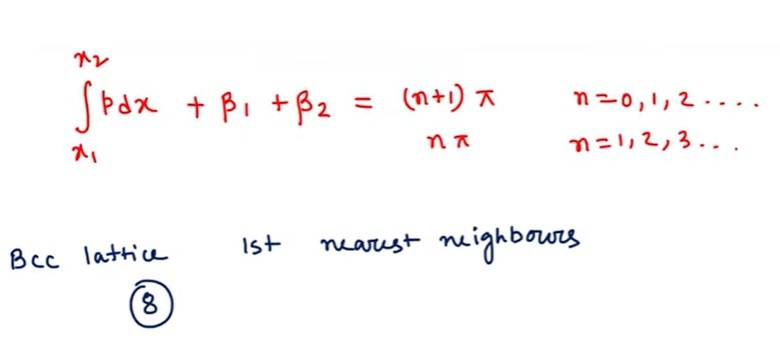 x₂
∫pdx + β₁ + β₂ = (n+1) π n=0,1,2....
x₁ nπ n=1,2,3...
Bcc lattice 1st nearest neighbours
8